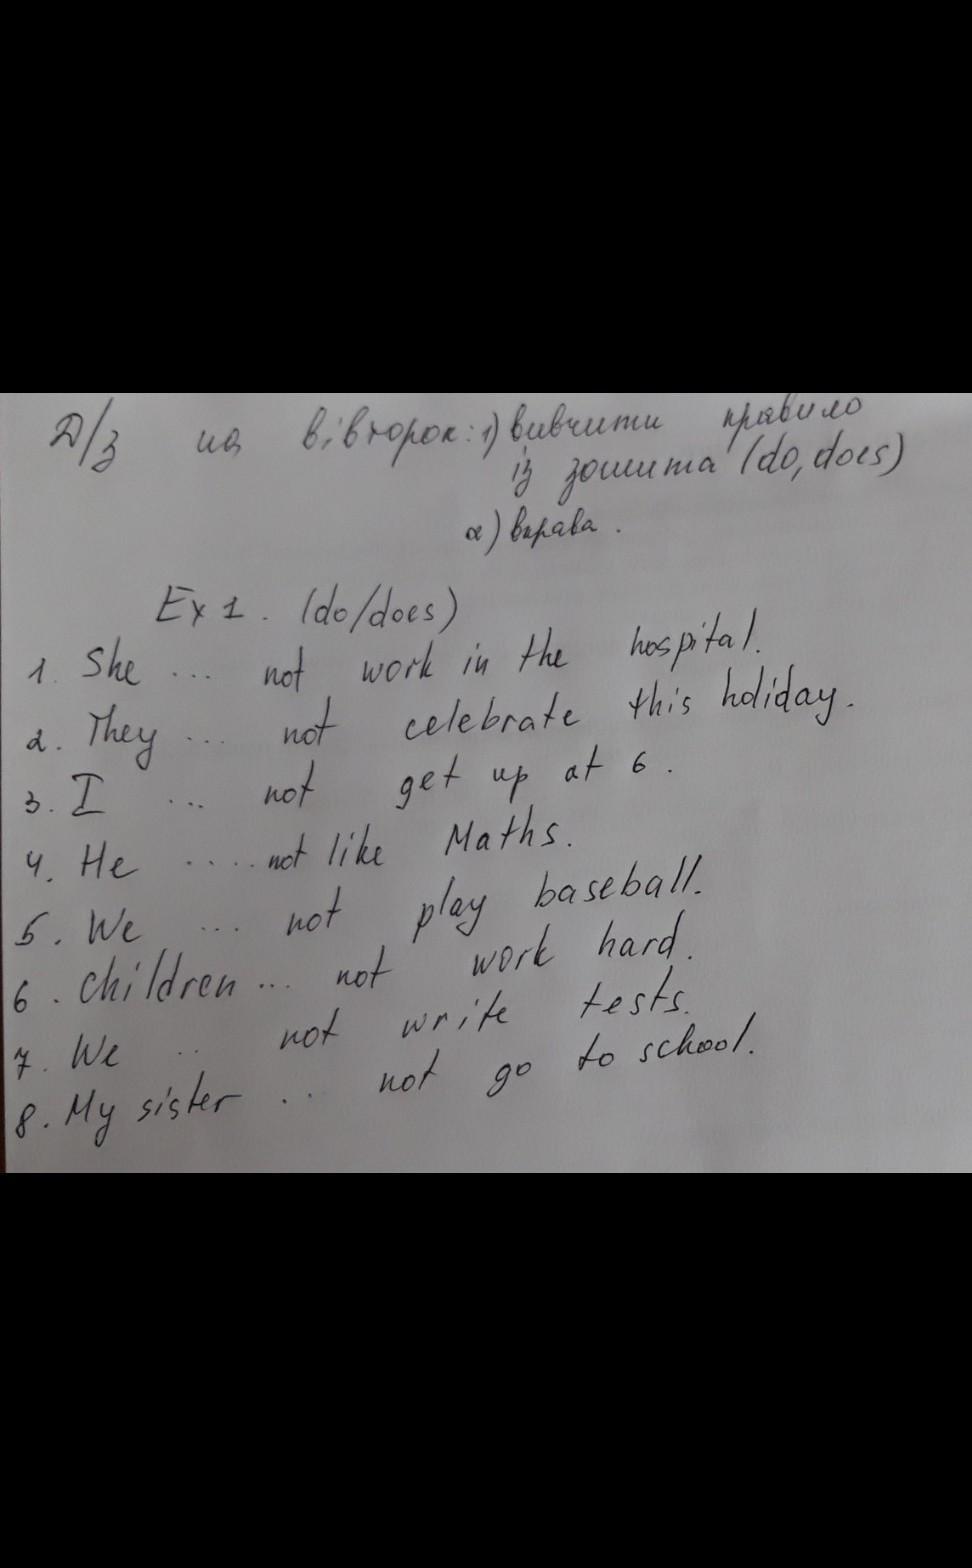 Д/з на вівторок: 1) вивчити правило
із зошита (do, does)
2) вправа.
Ex 1. (do/does)
1. She ... not work in the hospital.
2. They ... not celebrate this holiday.
3. I ... not get up at 6.
4. He .... not like Maths.
5. We ... not play baseball.
6. Children ... not work hard.
7. We .. not write tests.
8. My sister ... not go to school.